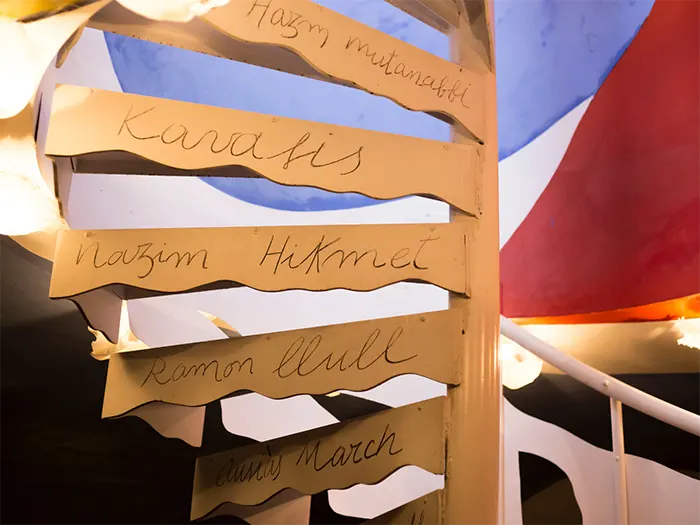 Hazm mutanabbi
Kavafis
nazim Hikmet
Ramon llull
ausiàs March